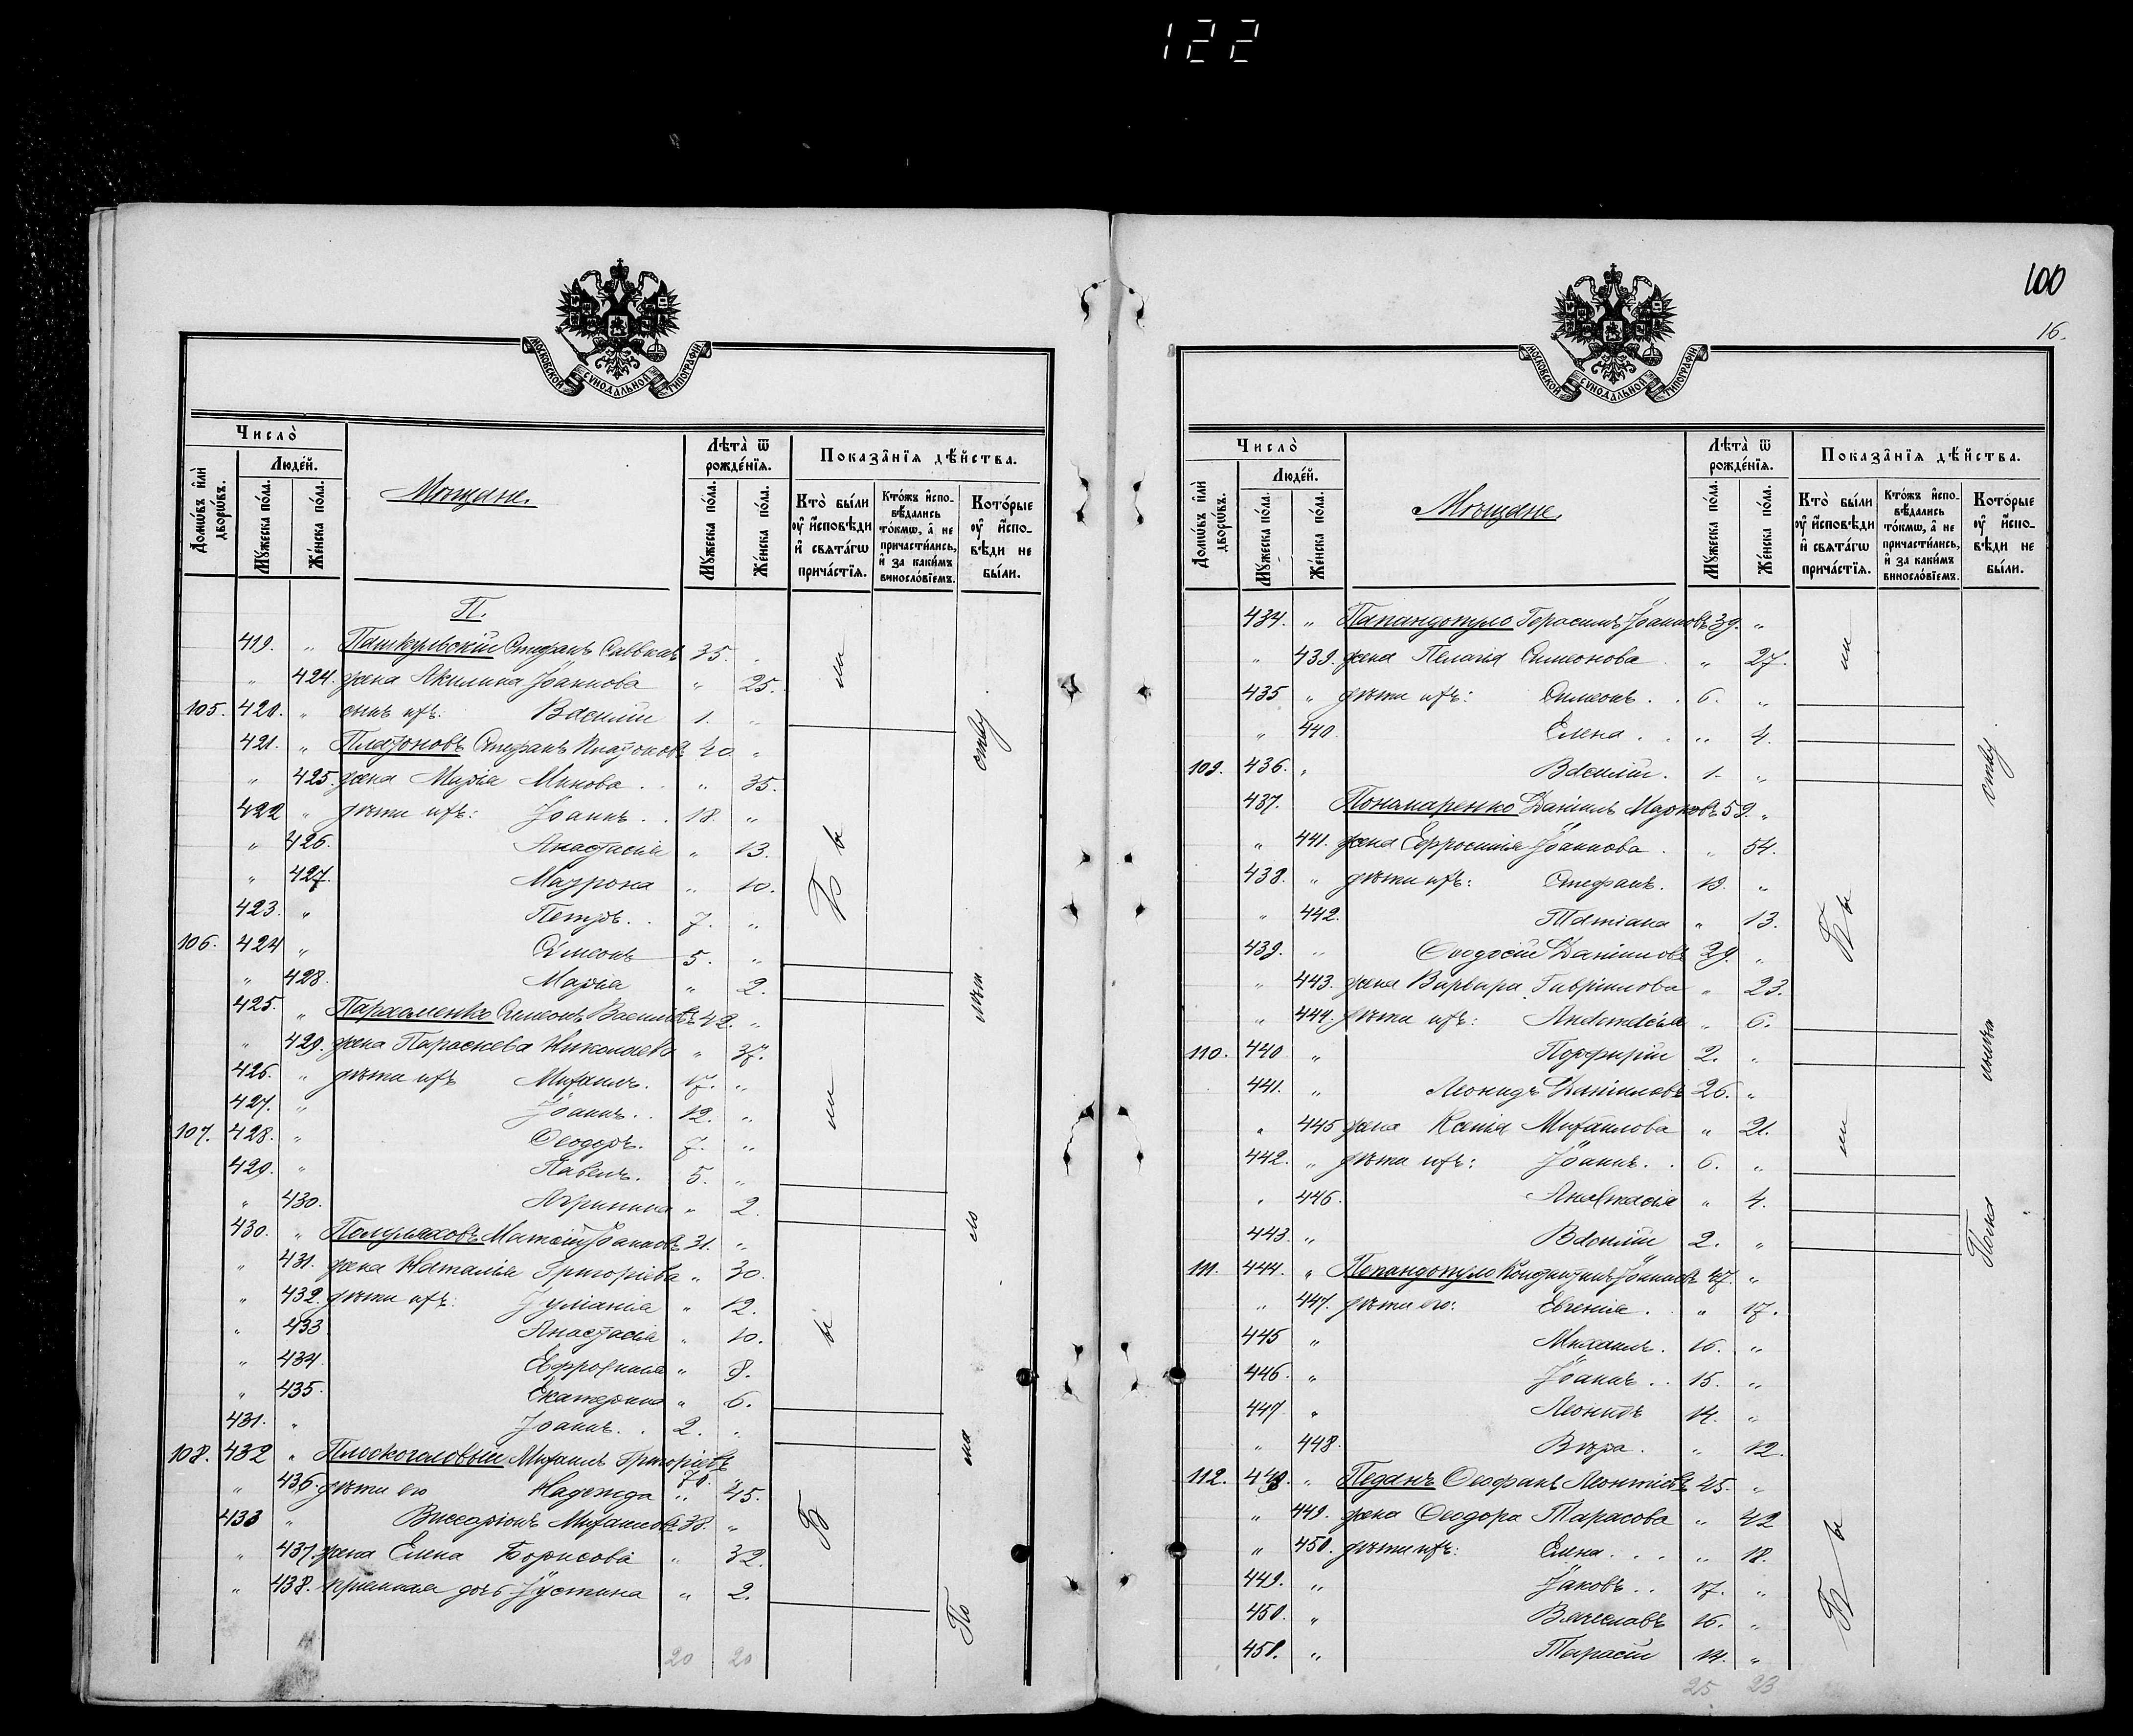 122
МОСКОВСКОЙ СУНОДАЛЬНОЙ ТИПОГРАФІИ
Число̀
Домѡ́въ и҆лѝ дворѡ́въ.
Люде́й.
Мꙋ́жеска по́ла.
Же́нска по́ла.
Мѣщане.
Лѣта̀ ѿ рожде́нїѧ.
Мꙋ́жеска по́ла.
Же́нска по́ла.
Показа̑нїѧ дѣ́йства.
Кто̀ бы́ли ᲂу҆ и҆́сповѣди и҆ свѧта́гѡ прича́стїѧ.
Кто́жъ и҆спо-вѣ́дались то́кмѡ, а҆ не причасти́лись, и҆ за каки́мъ винослові́емъ.
Кото́рые ᲂу҆ и҆́спо-вѣди не бы́ли.
П.
419. " Пашкульскій Стефанъ Саввинъ 35. "
" 424. жена Акилина Іоаннова " 25.
105. 420. " сынъ ихъ: Василій 1. "
421. " Платоновъ Стефанъ Платоновъ 40 "
" 425. жена Марія Минова . . " 35.
422 " дѣти ихъ: Іоаннъ . . 18. "
" 426. Анастасія " 13.
" 427. Матрона " 10.
423. " Петръ . . 7. "
106. 424 " Сѵмеонъ 5. "
" 428. Марія " 2.
425. " Пархоменко Симеонъ Васильевъ 42. "
" 429. жена Параскева Николаева " 37.
426. " дѣти ихъ Михаилъ. 17. "
427. " Іоаннъ . . 12. "
107. 428. " Ѳеодоръ. 7. "
429. " Павелъ. 5. "
" 430. Агрипина " 2.
430. " Полуляховъ Матѳій Іоанновъ 31. "
" 431. жена Наталія Григоріева " 30.
" 432. дѣти ихъ: Іуліанія " 12.
" 433 Анастасія " 10.
" 434 Евфросинія " 8.
" 435. Екатерина " 6.
431. " Іоаннъ. . 2. "
108. 432 " Плоскоголовый Михаилъ Григоріевъ 70. "
" 436. дѣти его Надежда " 45.
433 " Виссаріонъ Михаиловъ 38. "
" 437. жена Елена Борисова " 32.
" 438. пріемная дочь Іустина " 2.
20 20
100
16.
МОСКОВСКОЙ СУНОДАЛЬНОЙ ТИПОГРАФІИ
Число̀
Домѡ́въ и҆лѝ дворѡ́въ.
Люде́й.
Мꙋ́жеска по́ла.
Же́нска по́ла.
Мѣщане.
Лѣта̀ ѿ рожде́нїѧ.
Мꙋ́жеска по́ла.
Же́нска по́ла.
Показа̑нїѧ дѣ́йства.
Кто̀ бы́ли ᲂу҆ и҆́сповѣди и҆ свѧта́гѡ прича́стїѧ.
Кто́жъ и҆спо-вѣ́дались то́кмѡ, а҆ не причасти́лись, и҆ за каки́мъ винослові́емъ.
Кото́рые ᲂу҆ и҆́спо-вѣди не бы́ли.
434. " Папандопуло Герасимъ Іоанновъ 39. "
" 439. жена Пелагія Симеонова . " 27.
435 " дѣти ихъ: Симеонъ . . 6. "
" 440. Елена . . " 4.
109. 436. " Василій. 1. "
437. Понамаренко Даніилъ Марковъ 59. "
" 441. жена Евфросинія Іоаннова . " 54.
438. " дѣти ихъ: Стефанъ. 19. "
" 442. Татіана " 13.
439. " Ѳеодосій Даніиловъ 29. "
" 443. жена Варвара Гавріилова " 23.
" 444. дѣти ихъ: Анастасія " 6.
110. 440 " Порфирій 2. "
441. " Леонидъ Даніиловъ 26. "
" 445 жена Ксенія Михаилова " 21.
442. " дѣти ихъ: Іоаннъ. . 6. "
" 446. Анастасія " 4.
443. " Василій 2. "
111. 444. " Папандопуло Константинъ Іоанновъ 47. "
" 447. дѣти его: Евгенія . " 17.
445 " Михаилъ. 16. "
446. " Іоаннъ . . 15. "
447 " Леонидъ 14. "
" 448. Вѣра . " 12.
112. 448. " Педанъ Ѳеофанъ Леонтіевъ 45. "
" 449. жена Ѳеодора Тарасова " 42
" 450. дѣти ихъ: Елена. . . . " 18.
449. " Іаковъ . . 17. "
450. " Вячеславъ 16. "
451. " Тарасій 14. "
25 23